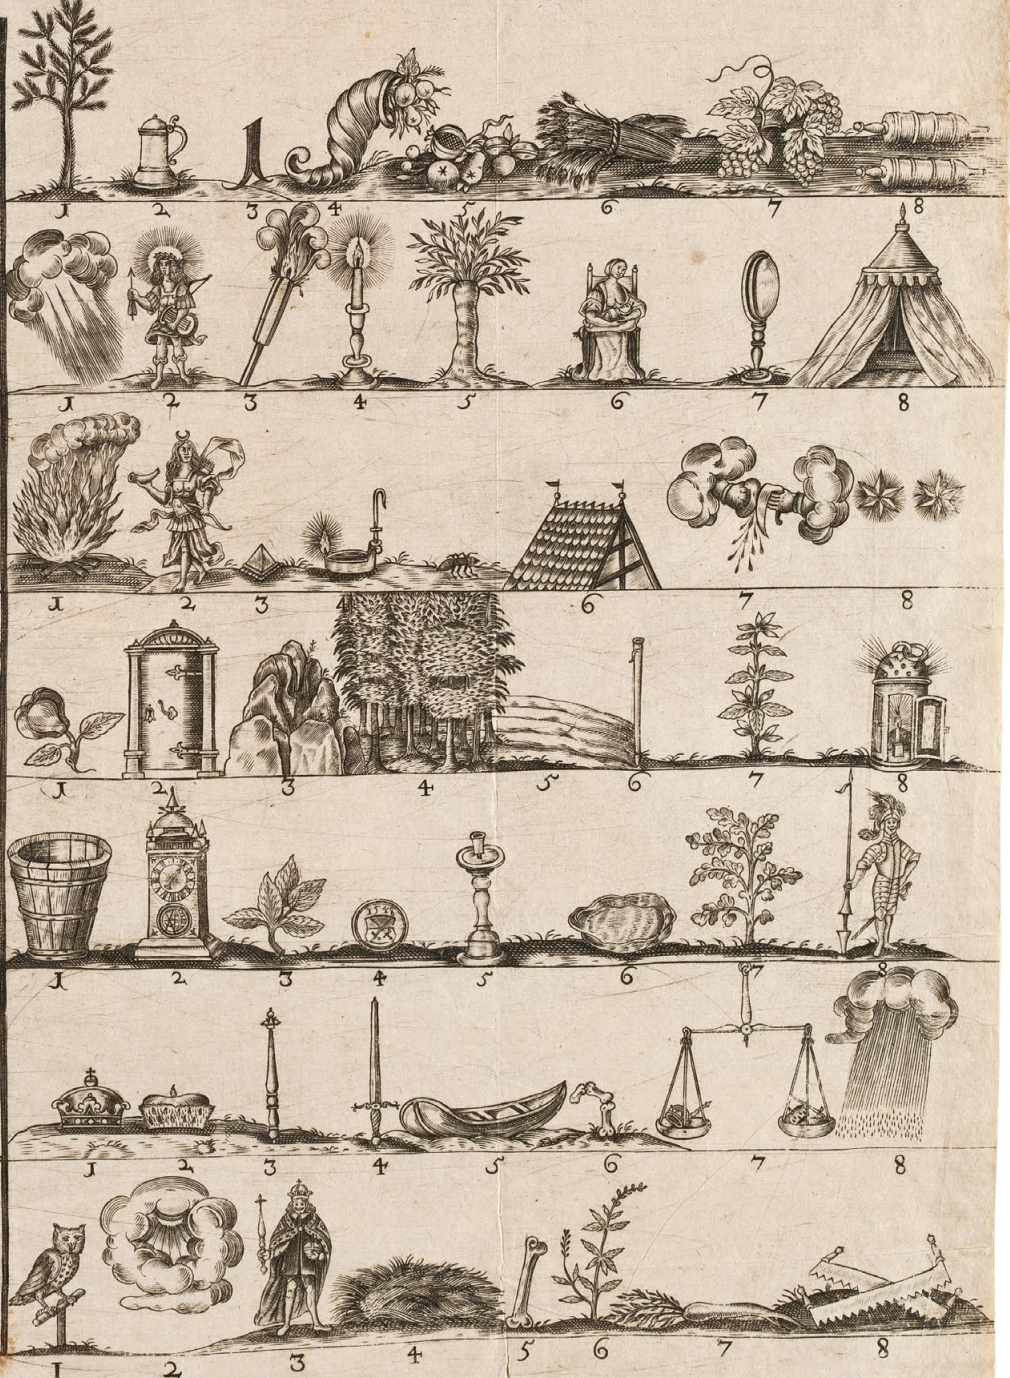 1 2 3 4 5 6 7 8
1 2 3 4 5 6 7 8
1 2 3 4 6 7 8
1 2 3 4 5 6 7 8
1 2 3 4 5 6 7 8
1 2 3 4 5 6 7 8
1 2 3 4 5 6 7 8